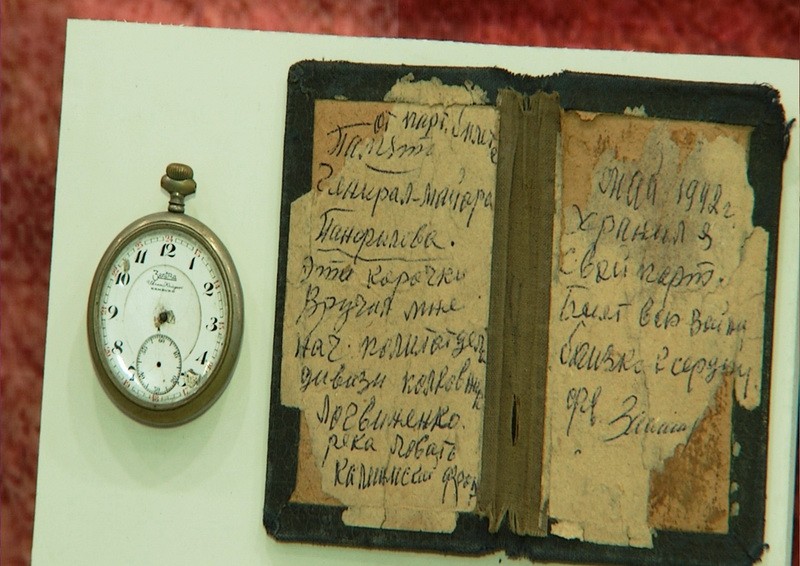 12
11
10
9
8
1
2
3
4
Zentra
60
от парт. билета
Память
Генирал-майора
Панфилова.
Эта корочки
Вручил мне
нач. политотдел
дивизи полковник
Логвиненко.
река Ловать
Калинмский фрон
май 1942г.
Хранил я
Свой парт.
билет всю войну
близко к сердцу